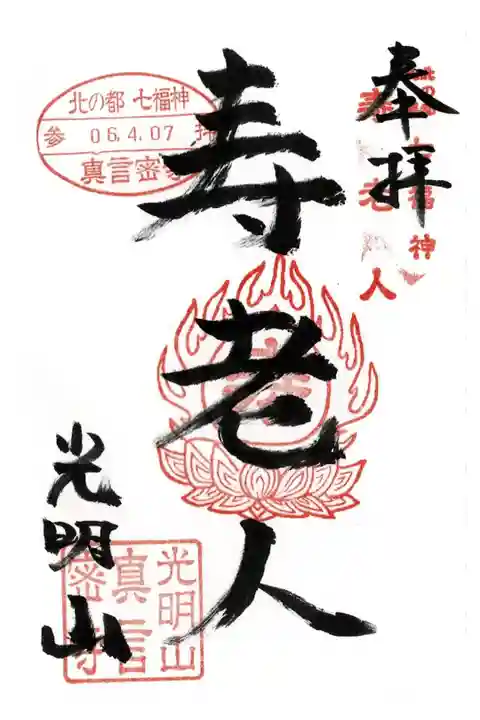 奉拝
北の都 七福神
寿老人
神
人
北の都 七福神
参 06.4.07 拝
真言密寺
寿老人
光明山
光明山
真言
密寺